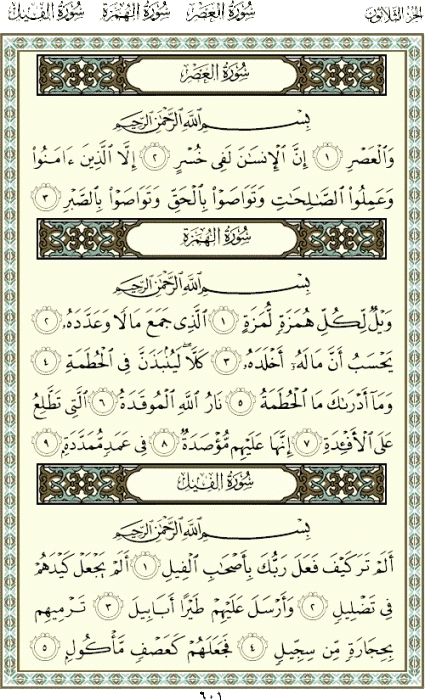 الجزء الثلاثون سورة العصر سورة الهمزة سورة الفيل
سورة العصر
بسم الله الرحمن الرحيم
وَالْعَصْرِ ١ إِنَّ الْإِنسَانَ لَفِي خُسْرٍ ٢ إِلَّا الَّذِينَ ءَامَنُوا
وَعَمِلُوا الصَّالِحَاتِ وَتَوَاصَوْا بِالْحَقِّ وَتَوَاصَوْا بِالصَّبْرِ ٣
سورة الهمزة
بسم الله الرحمن الرحيم
وَيْلٌ لِّكُلِّ هُمَزَةٍ لُّمَزَةٍ ١ الَّذِي جَمَعَ مَالًا وَعَدَّدَهُۥ ٢
يَحْسَبُ أَنَّ مَالَهُۥٓ أَخْلَدَهُۥ ٣ كَلَّا ۖ لَيُنبَذَنَّ فِي الْحُطَمَةِ ٤
وَمَا أَدْرَىٰكَ مَا الْحُطَمَةُ ٥ نَارُ اللَّهِ الْمُوقَدَةُ ٦ الَّتِي تَطَّلِعُ
عَلَى الْأَفْـِٔدَةِ ٧ إِنَّهَا عَلَيْهِم مُّؤْصَدَةٌ ٨ فِي عَمَدٍ مُّمَدَّدَةٍ ٩
سورة الفيل
بسم الله الرحمن الرحيم
أَلَمْ تَرَ كَيْفَ فَعَلَ رَبُّكَ بِأَصْحَابِ الْفِيلِ ١ أَلَمْ يَجْعَلْ كَيْدَهُمْ
فِي تَضْلِيلٍ ٢ وَأَرْسَلَ عَلَيْهِمْ طَيْرًا أَبَابِيلَ ٣ تَرْمِيهِم
بِحِجَارَةٍ مِّن سِجِّيلٍ ٤ فَجَعَلَهُمْ كَعَصْفٍ مَّأْكُولٍ ٥
٦٠١